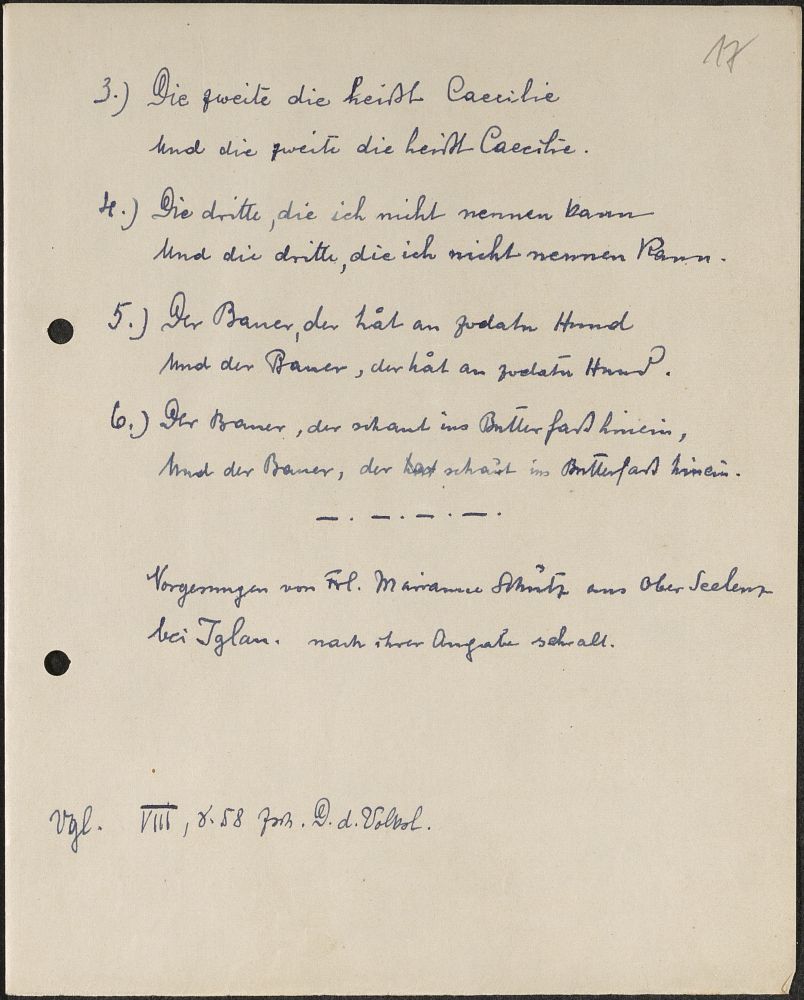 17
3.) Die zweite die heißt Caecilie
Und die zweite die heißt Caecilie.
4.) Die dritte, die ich nicht nennen kann
Und die dritte, die ich nicht nennen kann.
5.) Der Bauer, der håt an zodatn Hund
Und der Bauer, der håt an zodatn Hund.
6.) Der Bauer, der schaut ins Butterfaß hinein,
Und der Bauer, der hat schaut ins Butterfaß hinein.
Vorgesungen von Frl. Marianne Schütz aus Ober Seelenz
bei Iglau. nach ihrer Angabe sehr alt.
Vgl. VIII, 58 D. d. Volksl.